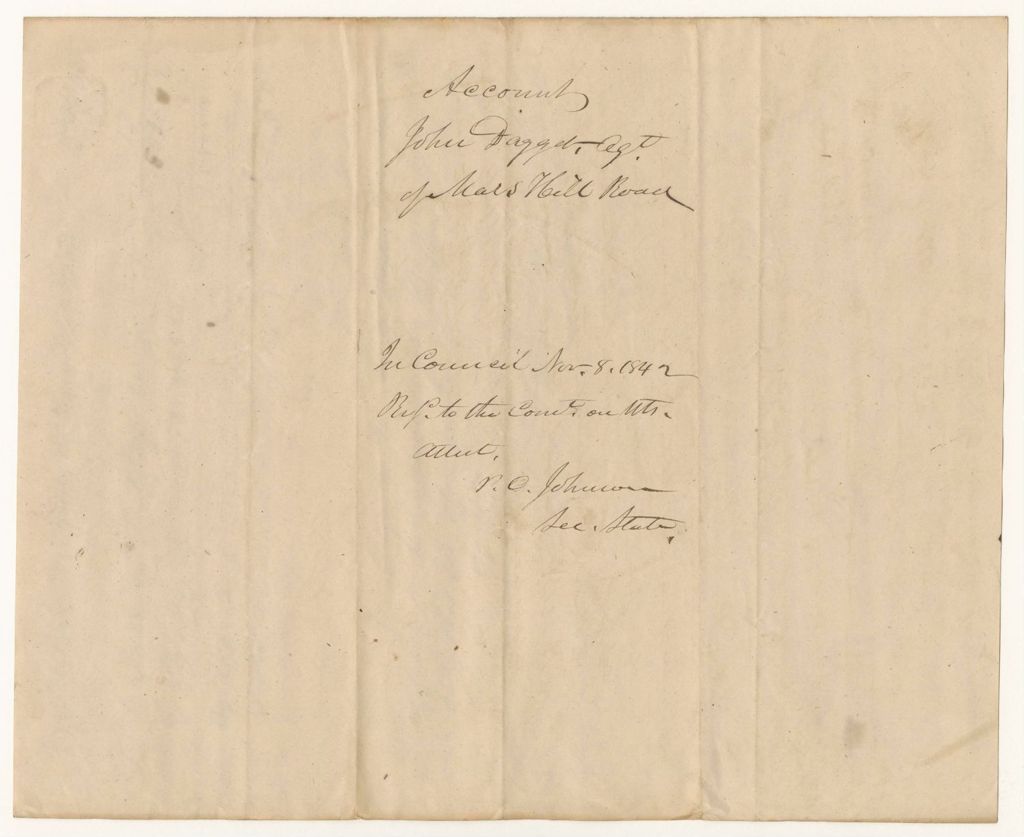 Account
John Dagget, Agt.
of Mars Hill Road
In Council Nov. 8. 1842
Ref. to the Comt. on
Attest,
P. C. Johnson
Sec. State.